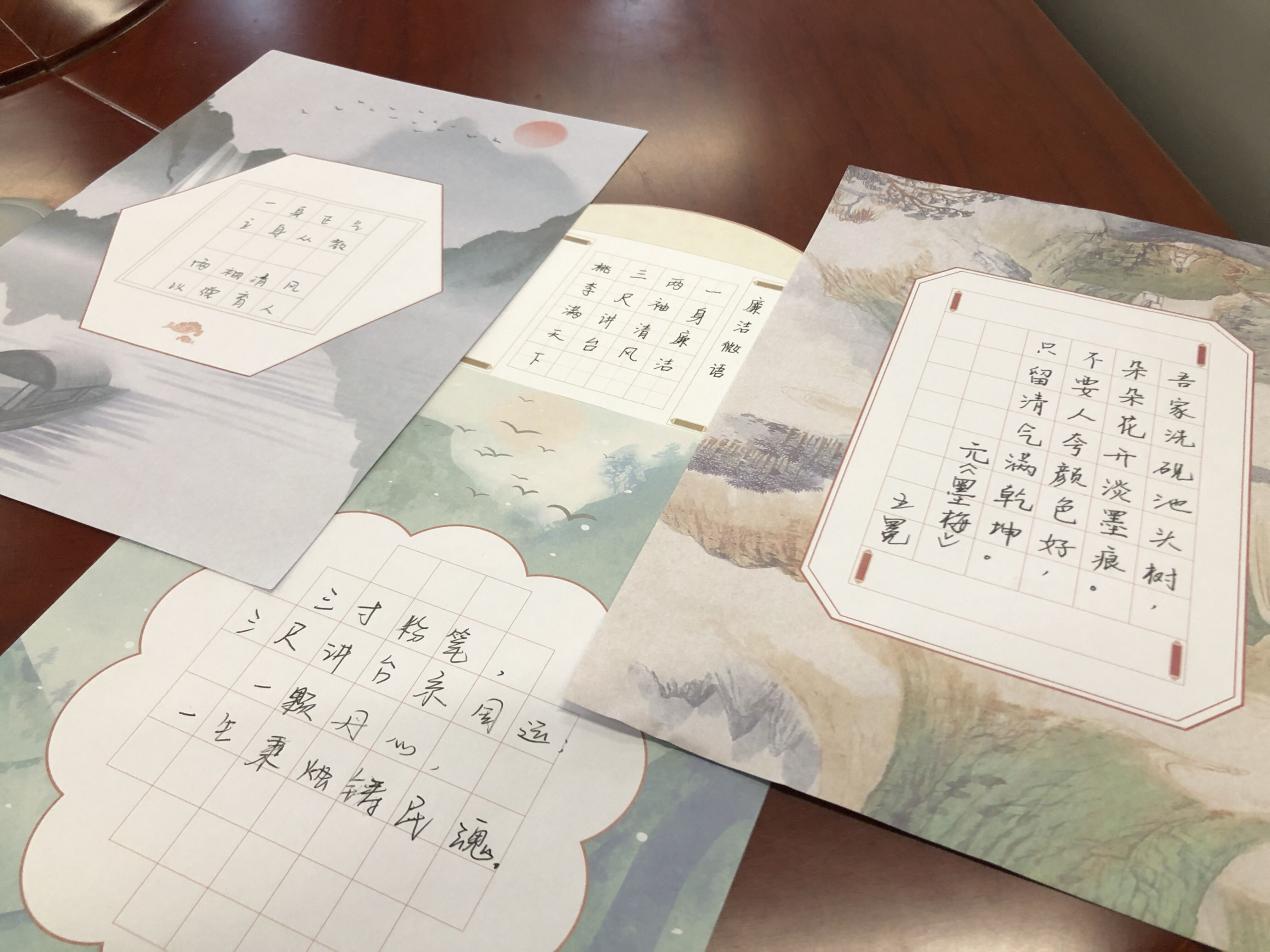 一身正气
立身从教
两袖清风
以德育人
廉洁微语
一身廉洁
两袖清风
三尺讲台
桃李满天下
吾家洗砚池头树，
朵朵花开淡墨痕。
不要人夸颜色好，
只留清气满乾坤。
元《墨梅》
王冕
三寸粉笔，
三尺讲台系国运；
一颗丹心，
一生秉烛铸民魂。